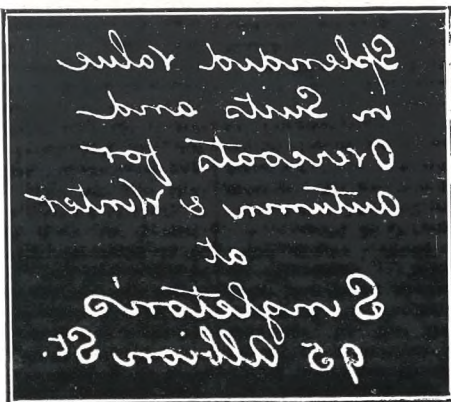 Splendid Value
in Suits and
Overcoats for
Autumn & Winter
at
Singleton's
95 Albion St.